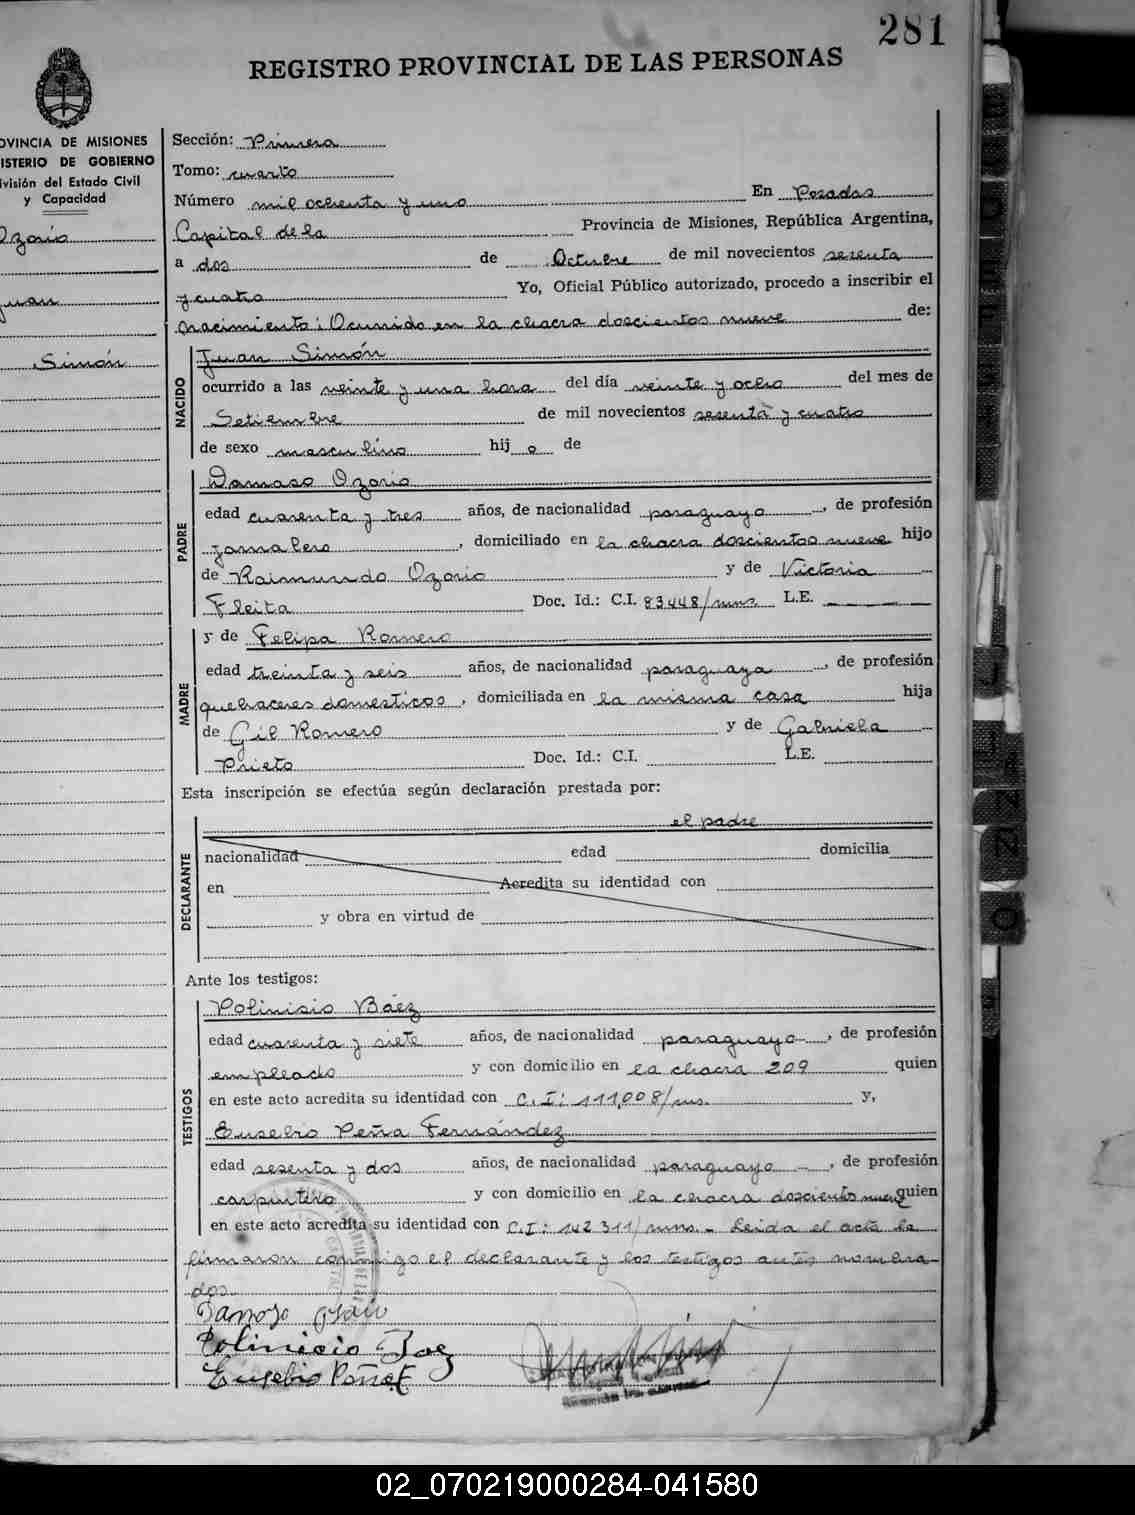 281
REGISTRO PROVINCIAL DE LAS PERSONAS
OVINCIA DE MISIONES
ISTERIO DE GOBIERNO
ivisión del Estado Civil
y Capacidad
Ozorio
Juan
Simón
Sección: Primera
Tomo: cuarto
Número mil ochenta y uno En Posadas
Capital de la Provincia de Misiones, República Argentina,
a dos de Octubre de mil novecientos sesenta
y cuatro Yo, Oficial Público autorizado, procedo a inscribir el
nacimiento: Ocurrido en la chacra doscientos nueve de:
NACIDO
Juan Simón
ocurrido a las veinte y una hora del día veinte y ocho del mes de
Setiembre de mil novecientos sesenta y cuatro
de sexo masculino hij o de
PADRE
Damaso Ozorio
edad cuarenta y tres años, de nacionalidad paraguayo, de profesión
jornalero, domiciliado en la chacra doscientos nueve hijo
de Raimundo Ozorio y de Victoria
Fleita Doc. Id.: C.I. 83448/mns. L.E. — — — —
MADRE
y de Felipa Romero
edad treinta y seis años, de nacionalidad paraguaya, de profesión
quehaceres domesticos, domiciliada en la misma casa hija
de Gil Romero y de Gabriela
Prieto Doc. Id.: C.I. L.E.
Esta inscripción se efectúa según declaración prestada por:
DECLARANTE
el padre
nacionalidad edad domicilia
en Acredita su identidad con
y obra en virtud de
Ante los testigos:
TESTIGOS
Polinisio Báez
edad cuarenta y siete años, de nacionalidad paraguayo, de profesión
empleado y con domicilio en la chacra 209 quien
en este acto acredita su identidad con C.I: 111,008/ms. y,
Eusebio Peña Fernández
edad sesenta y dos años, de nacionalidad paraguayo -, de profesión
carpintero y con domicilio en la chacra doscientos nueve quien
en este acto acredita su identidad con C.I: 142311/mns. - Leida el acta la
firmaron conmigo el declarante y los testigos antes nombra-
dos.
Polinicio Baez
Eusebio Peña F
02_070219000284-041580